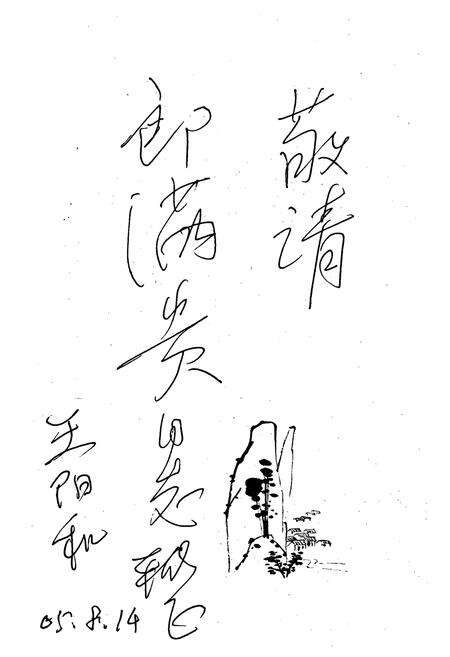 敬请
郎满贵同志
王阳和
05.8.14